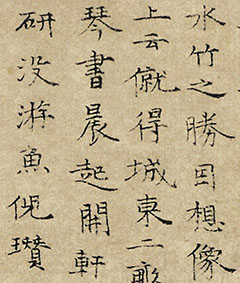 水竹之勝因想像
上云僦得城東二畝
琴書晨起開軒
研没游魚倪瓚